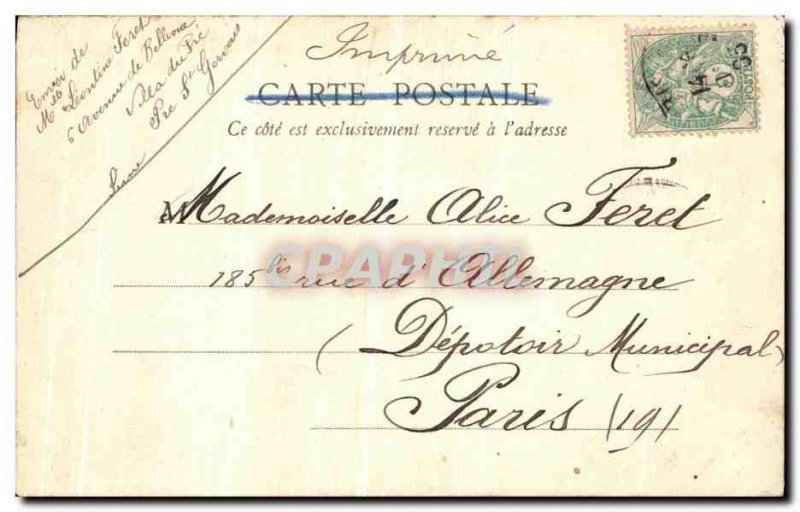 Envoi de
Mlle Léontine Feret
6 Avenue de Bellevue
Villa du Pré
Pré St Gervais
Seine
Imprimé
CARTE POSTALE
Ce côté est exclusivement reservé à l'adresse
Mademoiselle Alice Feret
185 bis rue d'Allemagne
(Dépotoir Municipal)
Paris (19)
CPAPHIL